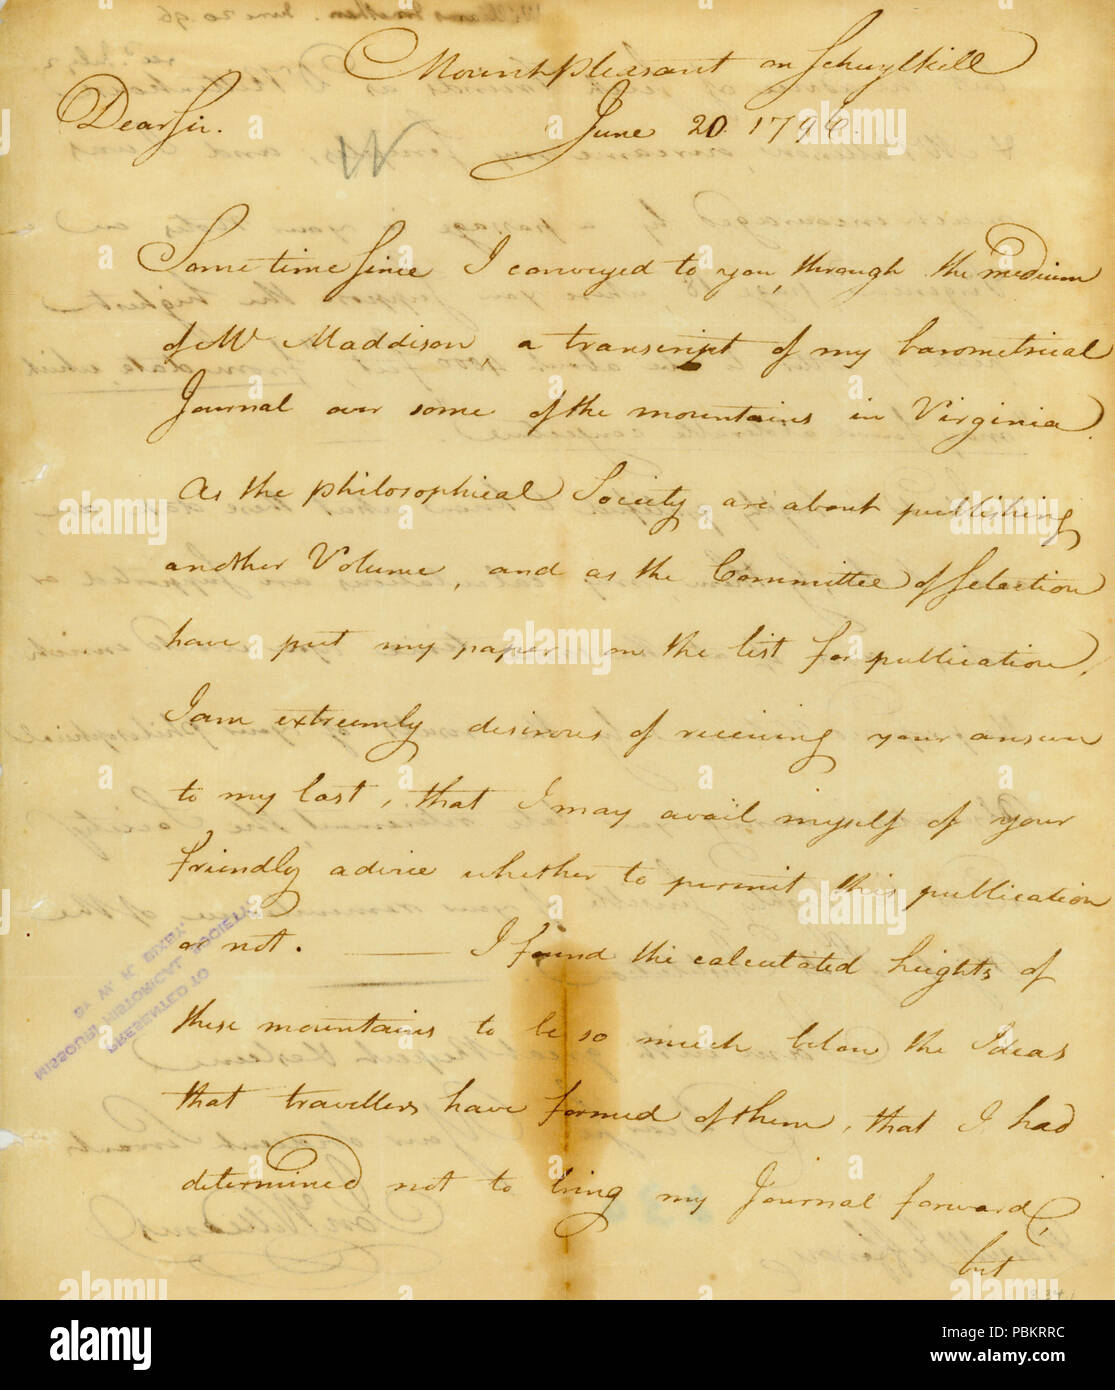 Mountpleasant on Schuylkill
Dear Sir.
June 20. 1796.
Sometime since I conveyed to you, through the medium
of Mr Maddison a transcript of my barometrical
Journal over some of the mountains in Virginia.
As the philosophical Society are about publishing
another Volume, and as the Committee of selection
have put my paper on the list for publication,
I am extreemly desirous of receiving your answer
to my last, that I may avail myself of your
friendly advice whether to permit this publication
or not. —— I found the calculated heights of
these mountains to be so much below the Ideas
that travellers have formed of them, that I had
determined not to bring my Journal forward,
but
PRESENTED TO
MISSOURI HISTORICAL SOCIETY
BY W. K. BIXBY
alamy
a
alamy stock photo
Image ID: PBKRRC
www.alamy.com